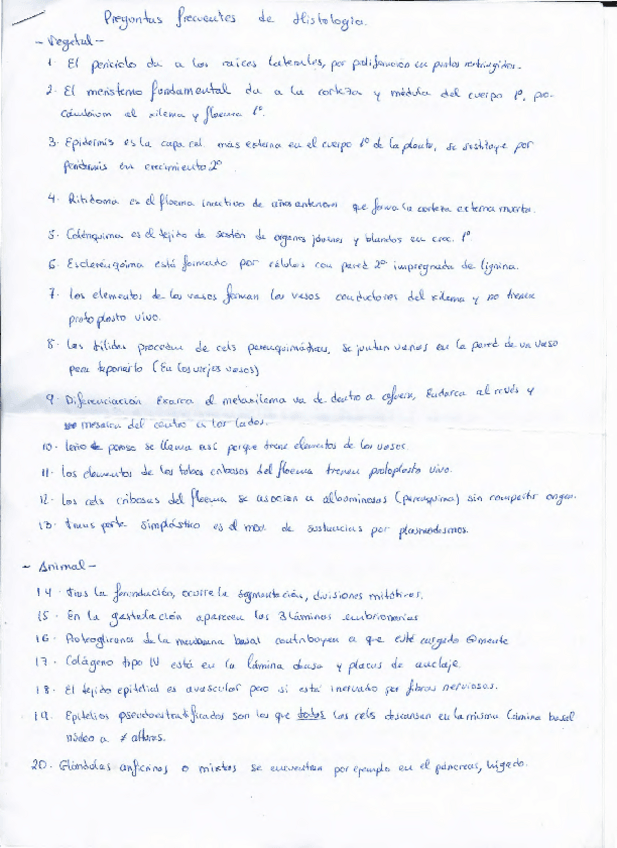 Preguntas frecuentes de Histología.
- Vegetal -
1. El periciclo da a las raíces laterales, por proliferación en puntos restringidos.
2. El meristemo fundamental da a la corteza y médula del cuerpo 1º, pro-
cámbium al xilema y floema 1º.
3. Epidermis es la capa cel. más externa en el cuerpo 1º de la planta, se sustituye por
peridermis en crecimiento 2º
4. Ritidoma es el floema inactivo de años anteriores que forma la corteza externa muerta.
5. Colénquima es el tejido de sostén de organos jóvenes y blandos en crec. 1º.
6. Esclerénquima está formado por células con pared 2º impregnada de lignina.
7. Los elementos de los vasos forman los vasos conductores del xilema y no tienen
protoplasto vivo.
8. Las tílides proceden de cels parenquimáticas, se juntan varias en la pared de un vaso
para taponarlo (En los viejos vasos)
9. Diferenciación Exarca el metaxilema va de dentro a afuera, Endarca al revés y
mesarca del centro a los lados.
10. Leño poroso se llama así porque tiene elementos de los vasos.
11. Los elementos de los tubos cribosos del floema tienen protoplasto vivo.
12. Las cels cribosas del floema se asocian a albuminosas (parénquima) sin compartir origen.
13. Transporte simplástico es el mov. de sustancias por plasmodesmos.
- Animal -
14. Tras la fecundación, ocurre la segmentación, divisiones mitóticas.
15. En la gastrulación aparecen las 3 láminas embrionarias
16. Proteoglicanos de la membrana basal contribuyen a que esté cargada ⊖mente
17. Colágeno tipo IV está en la lámina densa y placas de anclaje.
18. El tejido epitelial es avascular pero sí está inervado por fibras nerviosas.
19. Epitelios pseudoestratificados son los que todas las cels descansan en la misma lámina basal
núcleo a ≠ alturas.
20. Glándulas anficrinas o mixtas se encuentran por ejemplo en el páncreas, hígado.